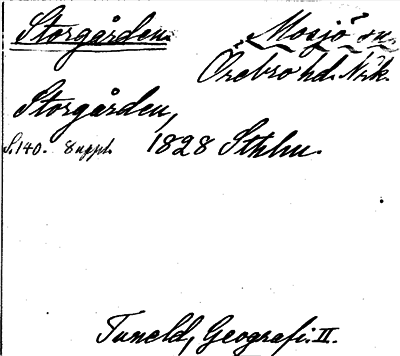 Storgården
Mosjö sn.
Örebro hd. Närk.
Storgården,
S. 140. 8 uppl. 1828 Sthlm.
Tuneld, Geografi. II.